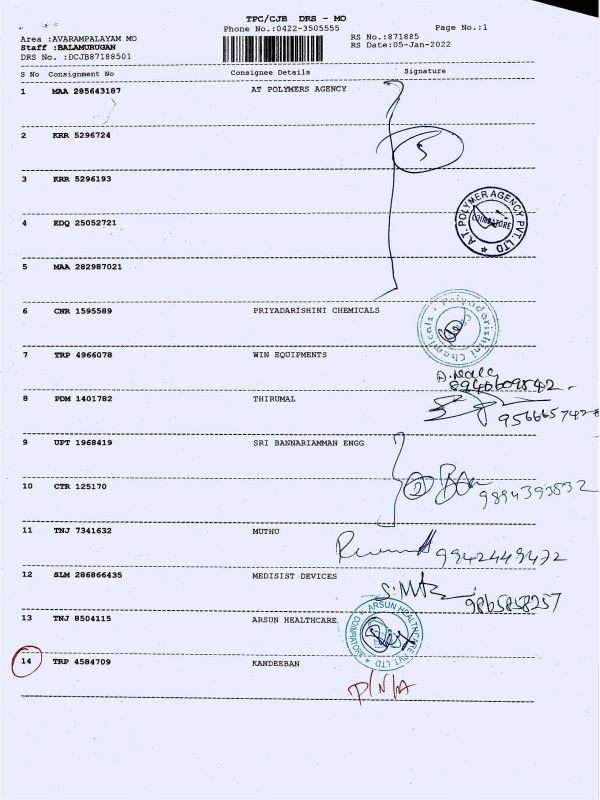 TPC/CJB DRS - MO
Phone No.:0422-3505555
Page No.:1
Area :AVARAMPALAYAM MO
Staff :BALAMURUGAN
DRS No. :DCJB87188501
RS No.:871885
RS Date:05-Jan-2022
S No Consignment No Consignee Details Signature
1 MAA 285643187 AT POLYMERS AGENCY
2 KRR 5296724
5
3 KRR 5296193
4 EDQ 25052721
A.T. POLYMER AGENCY PVT. LTD ★ COIMBATORE
5 MAA 282987021
6 CNR 1595589 PRIYADARISHINI CHEMICALS
Priyadarishini Chemicals
7 TRP 4966078 WIN EQUIPMENTS
8940609842
8 PDM 1401782 THIRUMAL
9 UPT 1968419 SRI BANNARIAMMAN ENGG
2
10 CTR 125170
9894393832
11 TNJ 7341632 MUTHU
9942449472
12 SLM 286866435 MEDISIST DEVICES
9865858257
13 TNJ 8504115 ARSUN HEALTHCARE
ARSUN HEALTHCARE PVT LTD ★ COIMBATORE
14 TRP 4584709 KANDEEBAN
P/N/A